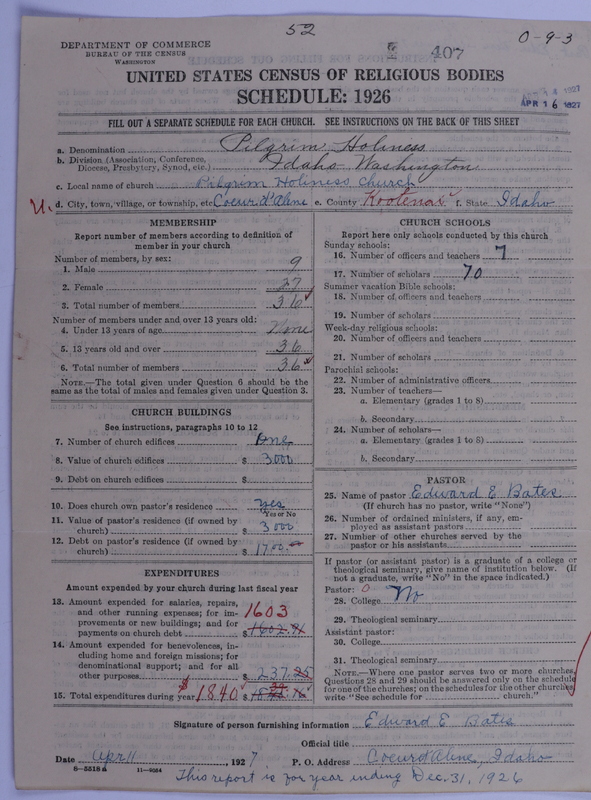 52
0-9-3
407
DEPARTMENT OF COMMERCE
BUREAU OF THE CENSUS
WASHINGTON
UNITED STATES CENSUS OF RELIGIOUS BODIES
SCHEDULE: 1926
APR 16 1927
FILL OUT A SEPARATE SCHEDULE FOR EACH CHURCH. SEE INSTRUCTIONS ON THE BACK OF THIS SHEET
a. Denomination Pilgrim Holiness
b. Division (Association, Conference, Diocese, Presbytery, Synod, etc.) Idaho-Washington
c. Local name of church Pilgrim Holiness Church
U. d. City, town, village, or township, etc. Coeur d'Alene e. County Kootenai f. State Idaho
MEMBERSHIP
Report number of members according to definition of
member in your church
Number of members, by sex:
1. Male 9
2. Female 27
3. Total number of members 36
Number of members under and over 13 years old:
4. Under 13 years of age None
5. 13 years old and over 36
6. Total number of members 36
NOTE.—The total given under Question 6 should be the
same as the total of males and females given under Question 3.
CHURCH BUILDINGS
See instructions, paragraphs 10 to 12
7. Number of church edifices One
8. Value of church edifices $ 3000
9. Debt on church edifices $
10. Does church own pastor's residence yes
Yes or No
11. Value of pastor's residence (if owned by
church) $ 3000
12. Debt on pastor's residence (if owned by
church) $ 1700.
EXPENDITURES
Amount expended by your church during last fiscal year
13. Amount expended for salaries, repairs,
and other running expenses; for im-
provements or new buildings; and for
payments on church debt $ 1602.91 1603
14. Amount expended for benevolences, in-
cluding home and foreign missions; for
denominational support; and for all
other purposes $ 237.25
15. Total expenditures during year $1840
CHURCH SCHOOLS
Report here only schools conducted by this church
Sunday schools:
16. Number of officers and teachers 7
17. Number of scholars 70
Summer vacation Bible schools:
18. Number of officers and teachers
19. Number of scholars
Week-day religious schools:
20. Number of officers and teachers
21. Number of scholars
Parochial schools:
22. Number of administrative officers
23. Number of teachers—
a. Elementary (grades 1 to 8)
b. Secondary
24. Number of scholars—
a. Elementary (grades 1 to 8)
b. Secondary
PASTOR
25. Name of pastor Edward E Bates
(If church has no pastor, write "None")
26. Number of ordained ministers, if any, em-
ployed as assistant pastors
27. Number of other churches served by the
pastor or his assistants
If pastor (or assistant pastor) is a graduate of a college or
theological seminary, give name of institution below. (If
not a graduate, write "No" in the space indicated.)
Pastor: 0
28. College No
29. Theological seminary
Assistant pastor:
30. College
31. Theological seminary
NOTE.—Where one pastor serves two or more churches,
Questions 28 and 29 should be answered only on the schedule
for one of the churches; on the schedules for the other churches
write "See schedule for church."
Signature of person furnishing information Edward E Bates
Official title
Date Apr 11, 1927 P. O. Address Coeur d'Alene, Idaho
8—5518a 11—9054
This report is for year ending Dec. 31, 1926